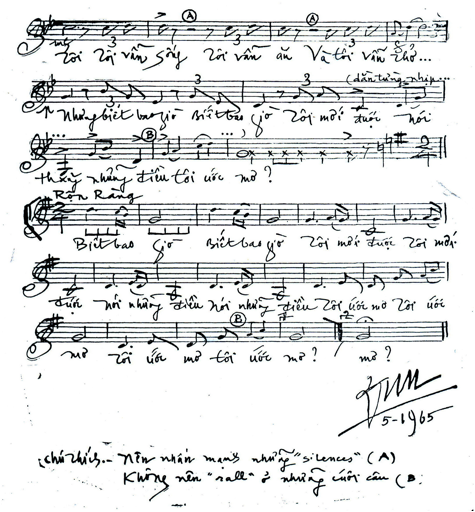 A A
Tôi Tôi vẫn sống Tôi vẫn ăn Và tôi vẫn thở...
(dằn từng nhịp...
Nhưng biết bao giờ Biết bao giờ Tôi mới được nói
B
thẳng những điều tôi ước mơ?
Rộn Ràng
Biết bao giờ Biết bao giờ Tôi mới được Tôi mới
được nói những điều nói những điều Tôi ước mơ Tôi ước
B
mơ tôi ước mơ tôi ước mơ? mơ?
5-1965
chú thích.- Nên nhấn mạnh những "silences" (A)
Không nên "rall" ở những cuối câu (B.